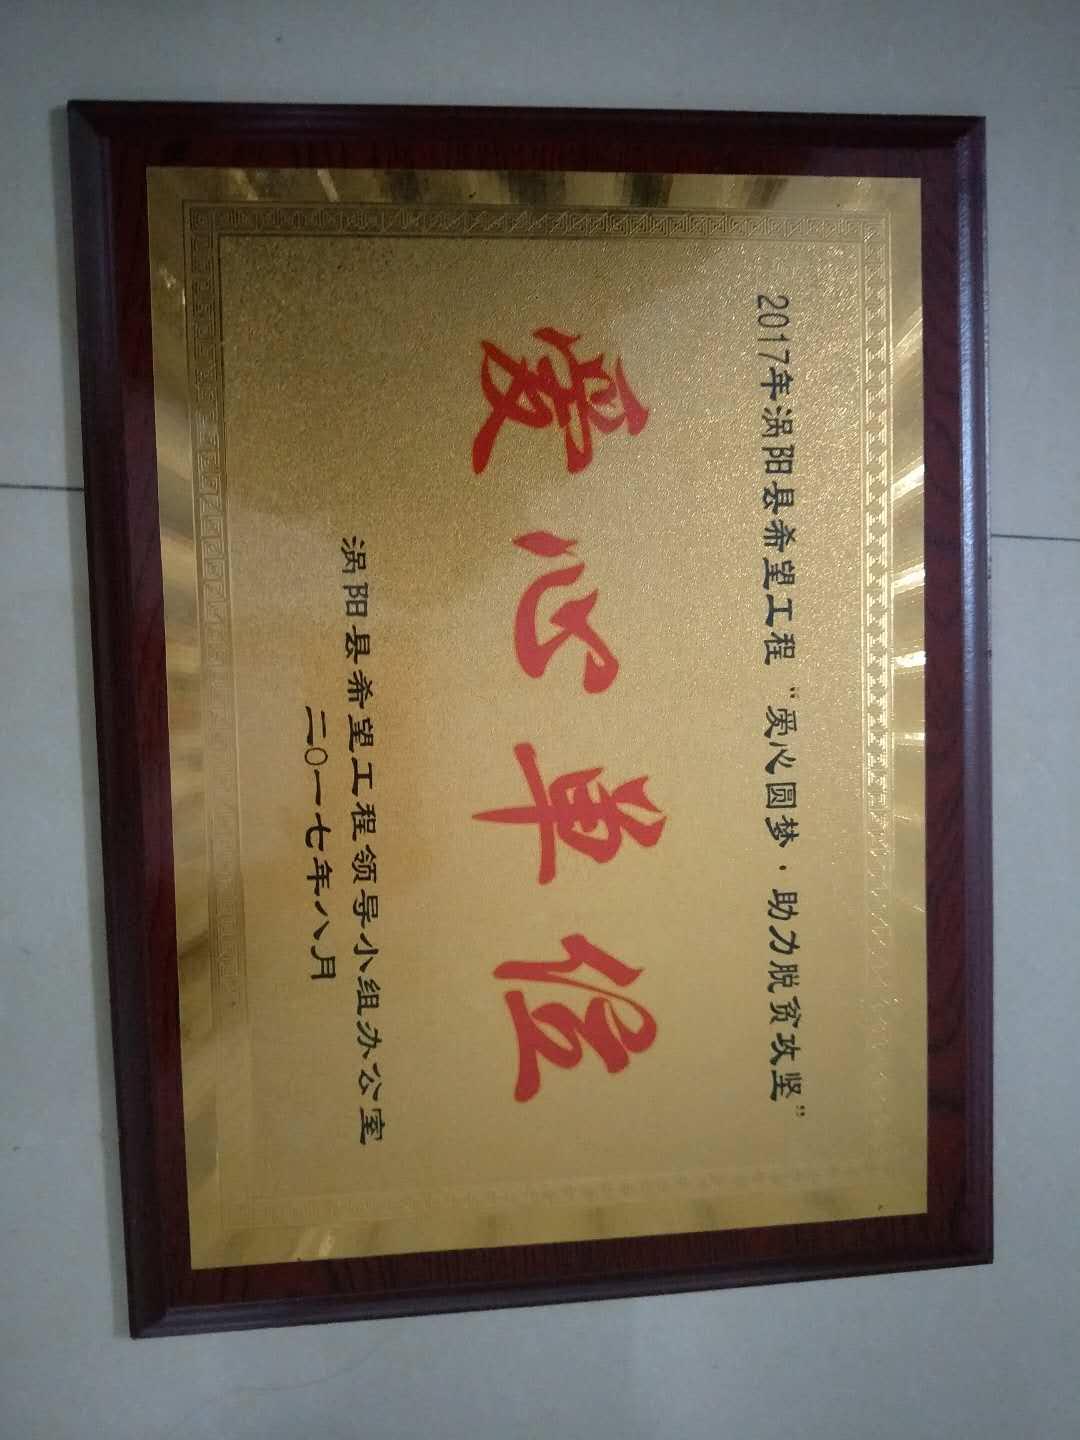 2017年涡阳县希望工程“爱心圆梦·助力脱贫攻坚”
爱心单位
涡阳县希望工程领导小组办公室
二〇一七年八月